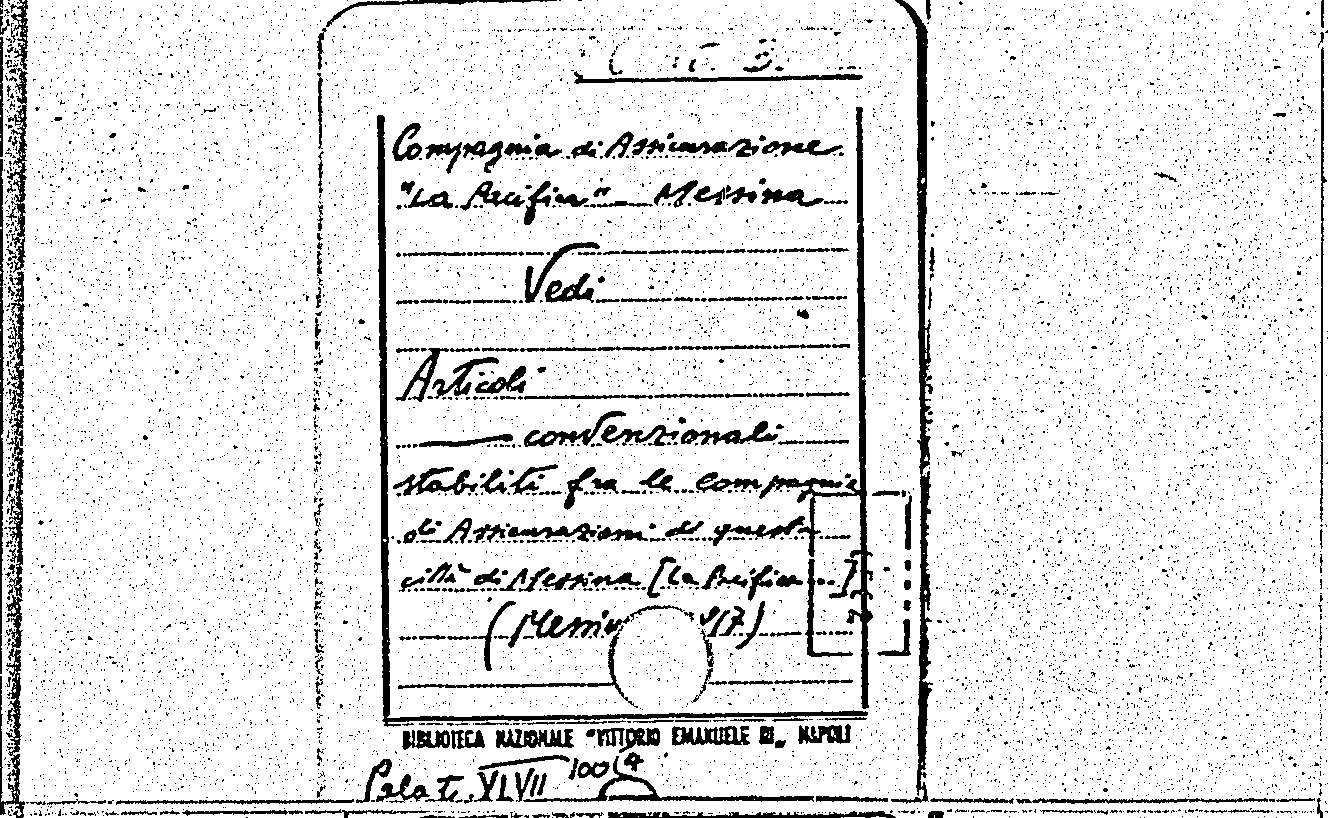 Compagnia di Assicurazione
"La Pacifica" - Messina
Vedi
Articoli
—— convenzionali
stabiliti fra le compagnie
di Assicurazioni di questa
città di Messina [La Pacifica ...]
(
BIBLIOTECA NAZIONALE "VITTORIO EMANUELE III„ NAPOLI
Palat. XLVII 100(4